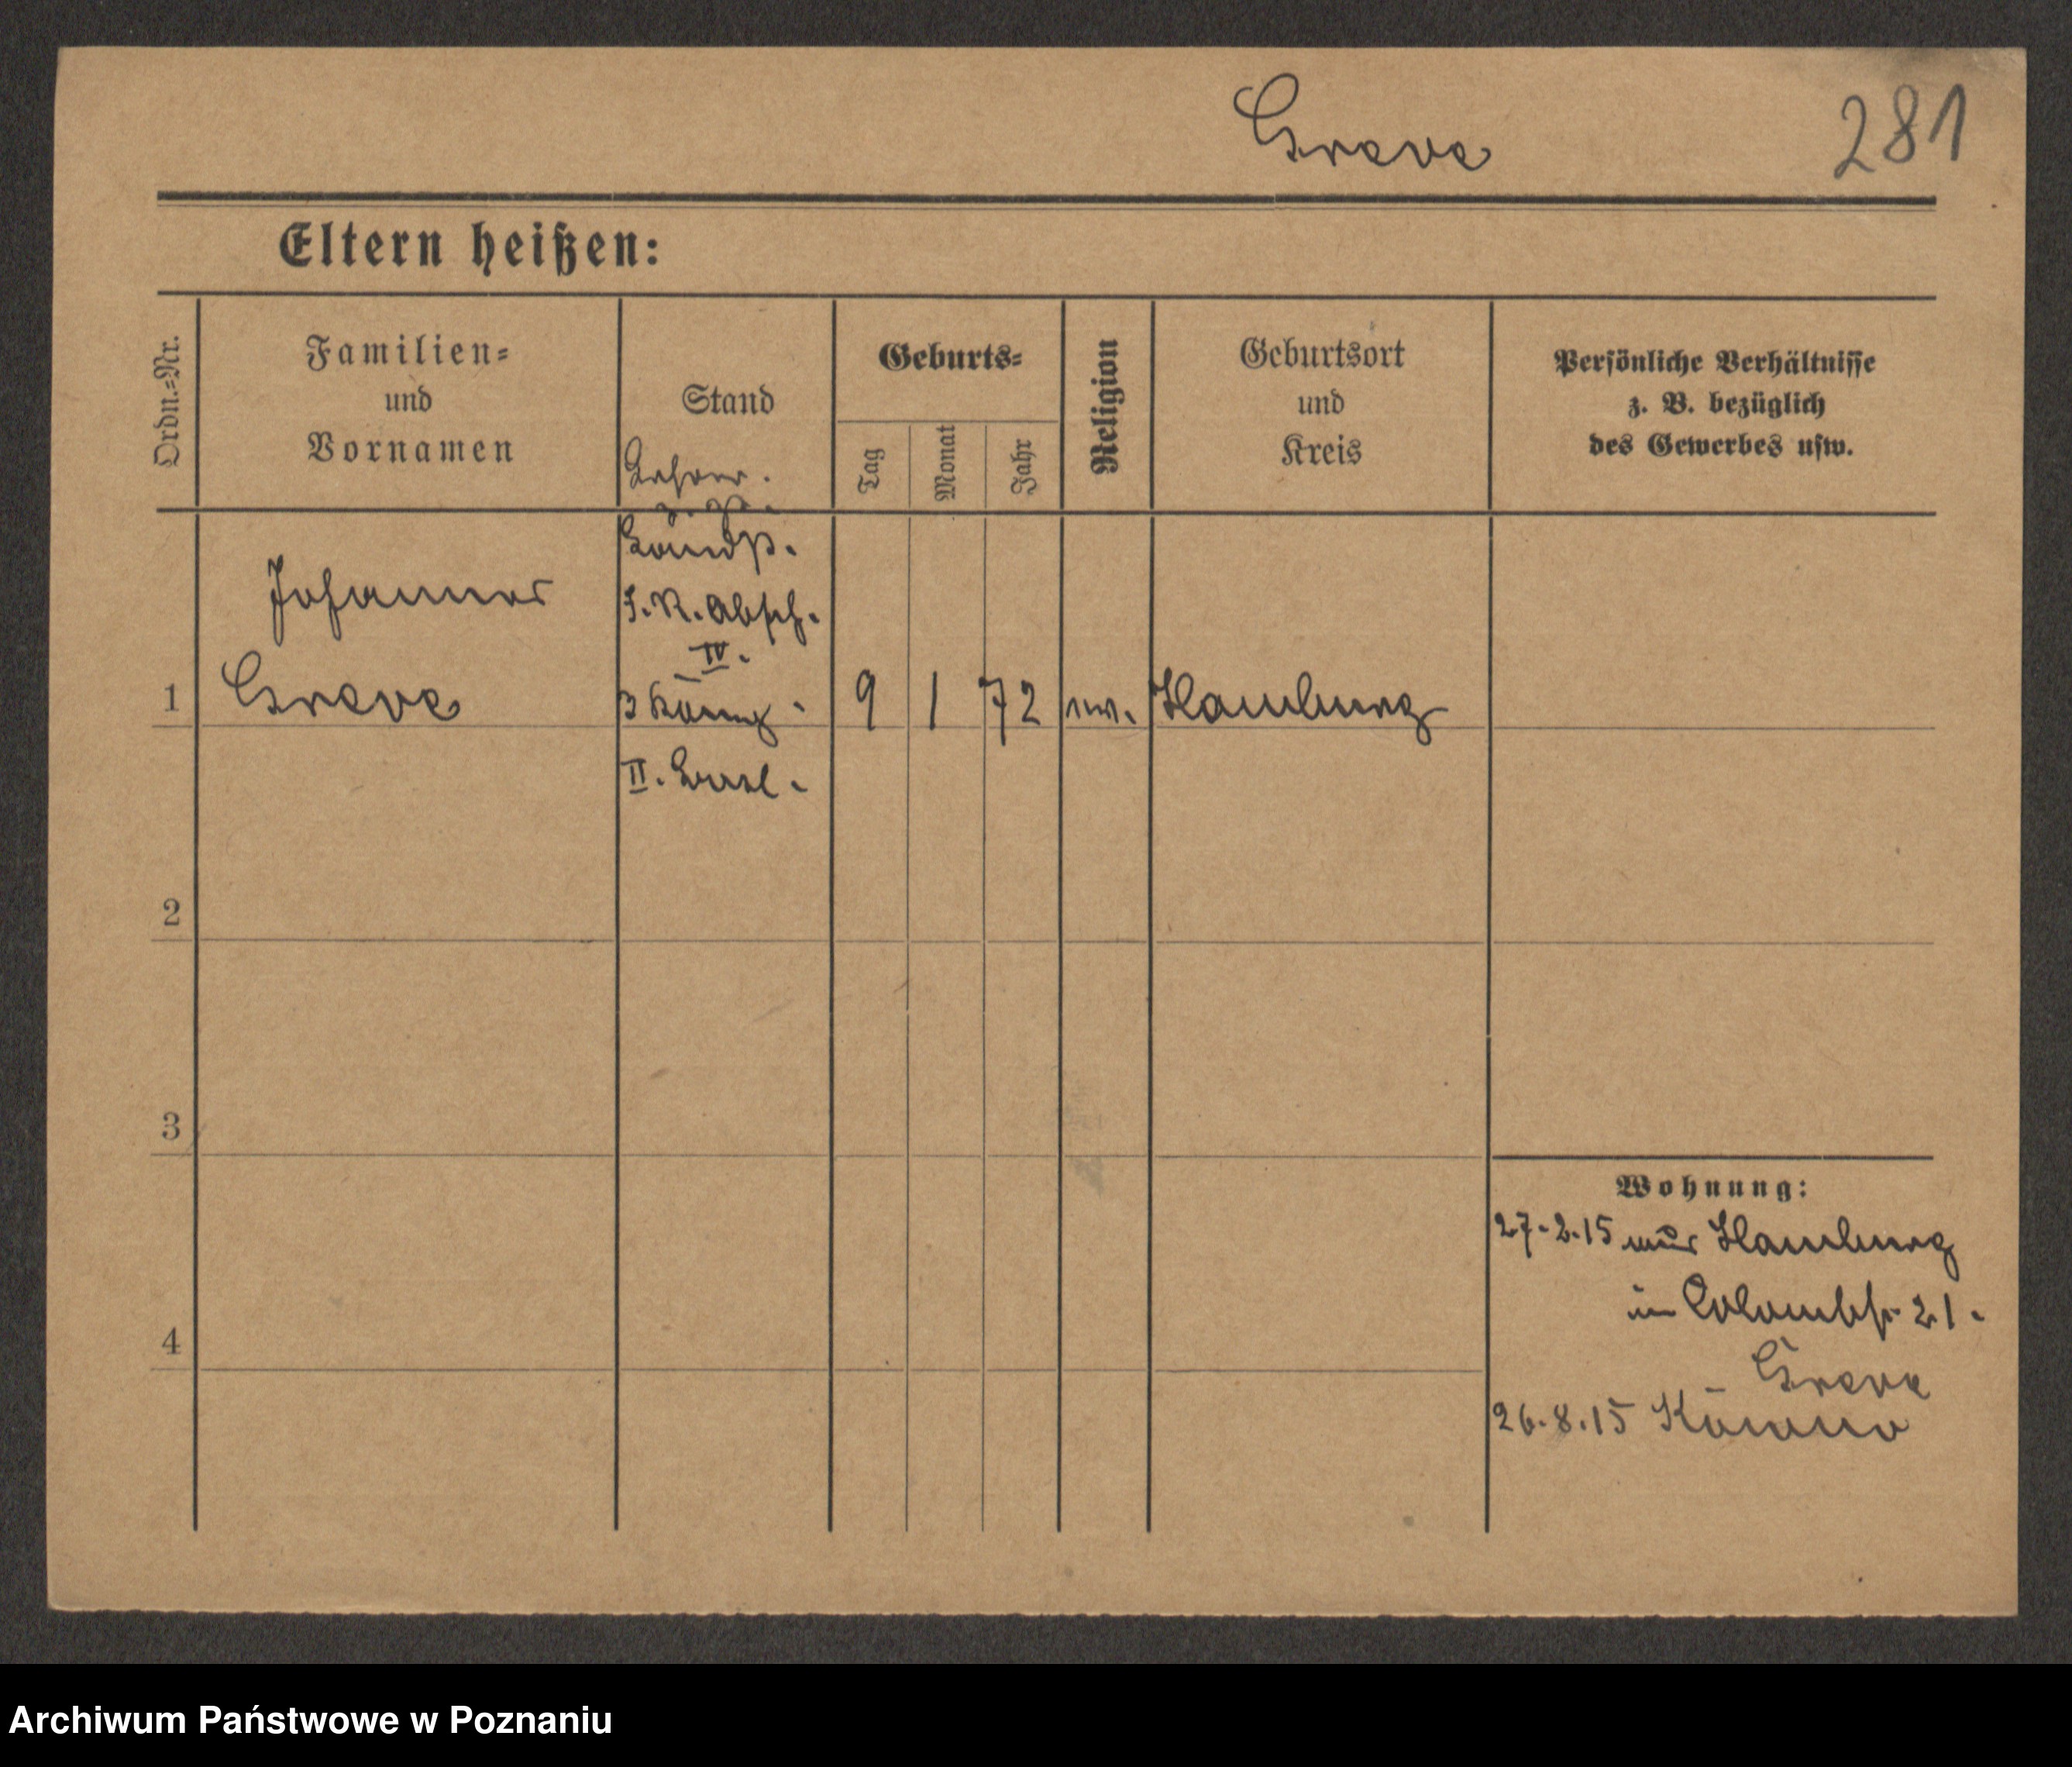 Greve 281
Eltern heißen:
Ordn.=Nr.
Familien=
und
Vornamen
Stand
Geburts=
Tag
Monat
Jahr
Religion
Geburtsort
und
Kreis
Persönliche Verhältnisse
z. B. bezüglich
des Gewerbes usw.
Lehrer.
z. Zt.
Landst.
I. R. Absch.
IV.
3 Komp.
II.
Johannes
1 Greve 9 1 72 ev. Hamburg
2
3
4
Wohnung:
27.2.15 aus Hamburg
in Colombstr. 21.
Greve
26.8.15
Archiwum Państwowe w Poznaniu